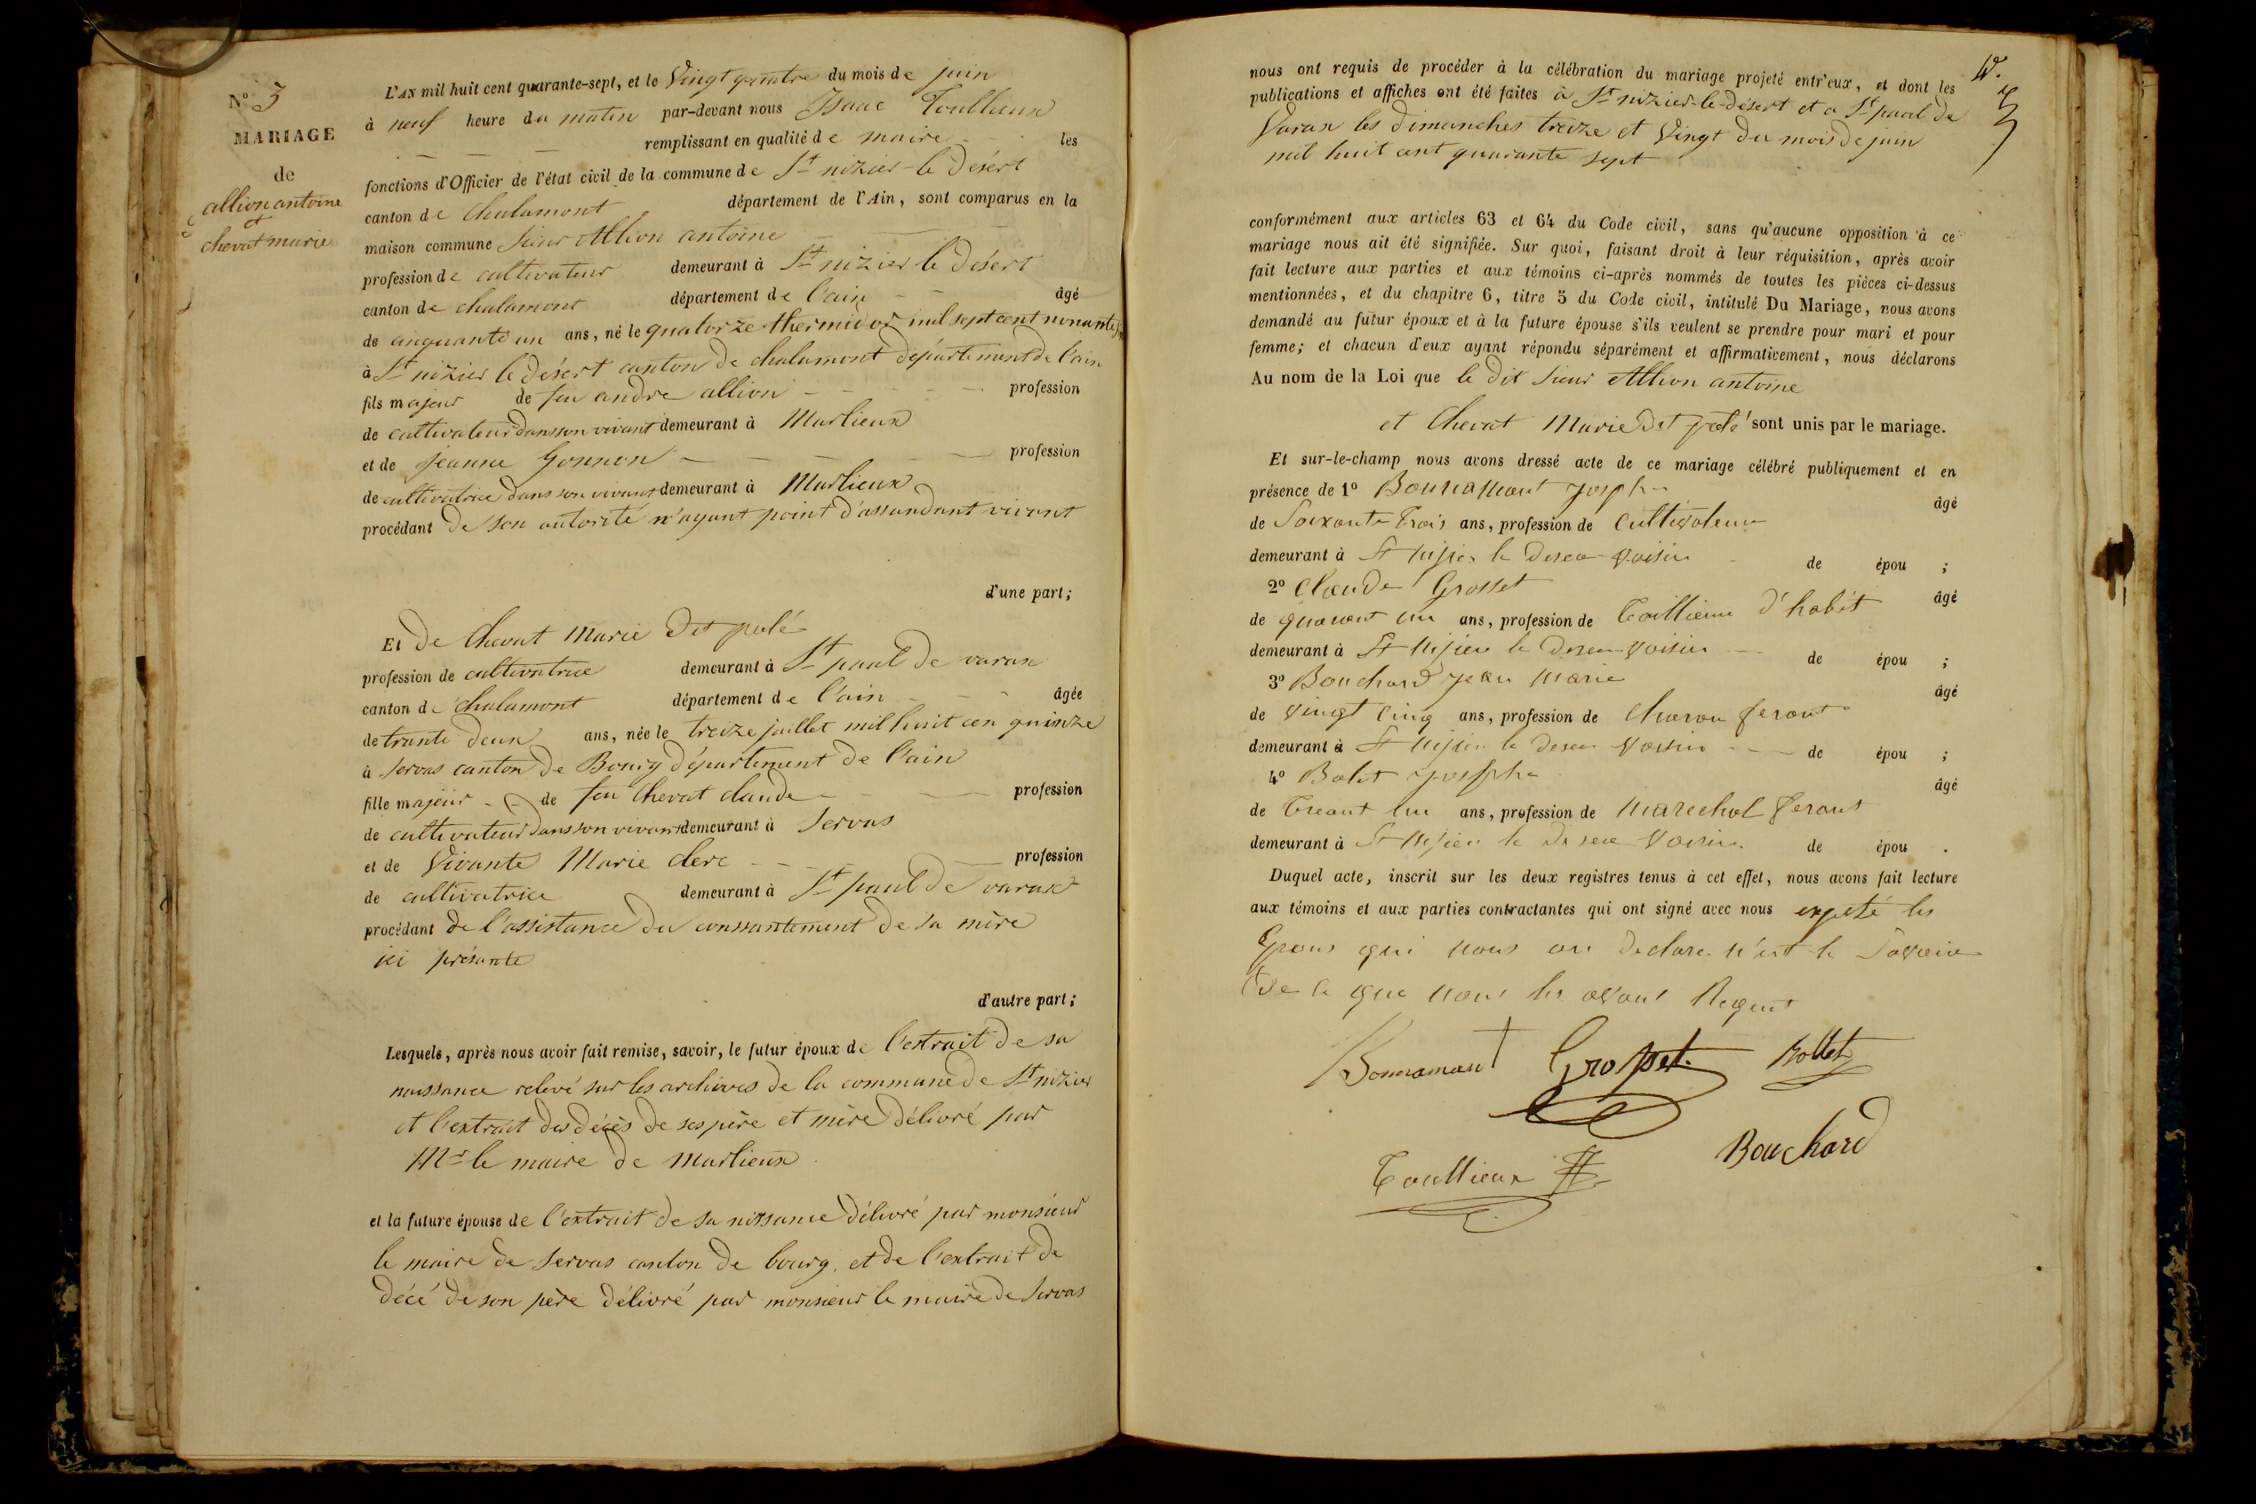 N° 5
MARIAGE
de
allion antoine
et
chevat marie
L'AN mil huit cent quarante-sept, et le Vingt quatre du mois de juin
à neuf heure du matin par-devant nous Isaac Toullieux
remplissant en qualité de maire les
fonctions d'Officier de l'état civil de la commune de St nizier le Désért
canton de Chalamont département de l'Ain, sont comparus en la
maison commune sieur Allion antoine
profession de cultivateur demeurant à St nizier le Désért
canton de chalamont département de l'ain âgé
de cinquante un ans, né le quatorze thermidor mil sept cent nonante
à St nizier le désért canton de chalamont département de l'ain
fils majeur de feu andre allion profession
de cultivateur dans son vivant demeurant à Marlieux
et de jeanne Gonnon profession
de cultivatrice dans son vivant demeurant à Marlieux
procédant de son autorité n'ayant point d'assandant vivant
d'une part;
Et de Chevat Marie dit polé
profession de cultivatrice demeurant à St paul de varax
canton de chalamont département de l'ain âgée
de trante deux ans, née le treize juillet mil huit cen quinze
à servas canton de Bourg département de l'ain
fille majeur de feu Chevat claude profession
de cultivateur dans son vivant demeurant à Servas
et de Vivante Marie clerc profession
de cultivatrice demeurant à St paul de varax
procédant de l'assistance du conssantement de sa mère
ici présante
d'autre part;
Lesquels, après nous avoir fait remise, savoir, le futur époux de l'extrait de sa
naissance relevé sur les archives de la commune de St nizier
et l'extrait des décès de ses père et mère délivré par
Mr le maire de Marlieux
et la future épouse de l'extrait de sa nissance délivré par monsieur
le maire de servas canton de bourg. et de l'extrait de
décé de son père délivré par monsieur le maire de Servas
nous ont requis de procéder à la célébration du mariage projeté entr'eux, et dont les
publications et affiches ont été faites à St nizier-le-désert et a St paul de
Varax les dimanches treize et Vingt du mois de juin
mil huit cent quarante sept
conformément aux articles 63 et 64 du Code civil, sans qu'aucune opposition à ce
mariage nous ait été signifiée. Sur quoi, faisant droit à leur réquisition, après avoir
fait lecture aux parties et aux témoins ci-après nommés de toutes les pièces ci-dessus
mentionnées, et du chapitre 6, titre 5 du Code civil, intitulé Du Mariage, nous avons
demandé au futur époux et à la future épouse s'ils veulent se prendre pour mari et pour
femme; et chacun d'eux ayant répondu séparément et affirmativement, nous déclarons
Au nom de la Loi que le dit sieur Allion antoine
et Chevat Marie dit polé sont unis par le mariage.
Et sur-le-champ nous avons dressé acte de ce mariage célébré publiquement et en
présence de 1° Bonnamant Joseph âgé
de Soixante Trois ans, profession de Cultivateur
demeurant à St nisier le deser voisin de épou ;
2° Claude Grosset âgé
de quarant un ans, profession de Tailleur d'habit
demeurant à St nisier le deser voisin de épou ;
3° Bouchard Jean Marie âgé
de vingt cinq ans, profession de Charon ferant
demeurant à St nisier le deser voisin de épou ;
4° Bolet Joseph âgé
de Treant un ans, profession de Marechal ferant
demeurant à St nisier le deser voisin de épou .
Duquel acte, inscrit sur les deux registres tenus à cet effet, nous avons fait lecture
aux témoins et aux parties contractantes qui ont signé avec nous expeté les
Epous qui nous on declare n'eut le savoire
de ce que nous les avons Requit
Bonnamant Grosset Bollet
Bouchard
Toullieux